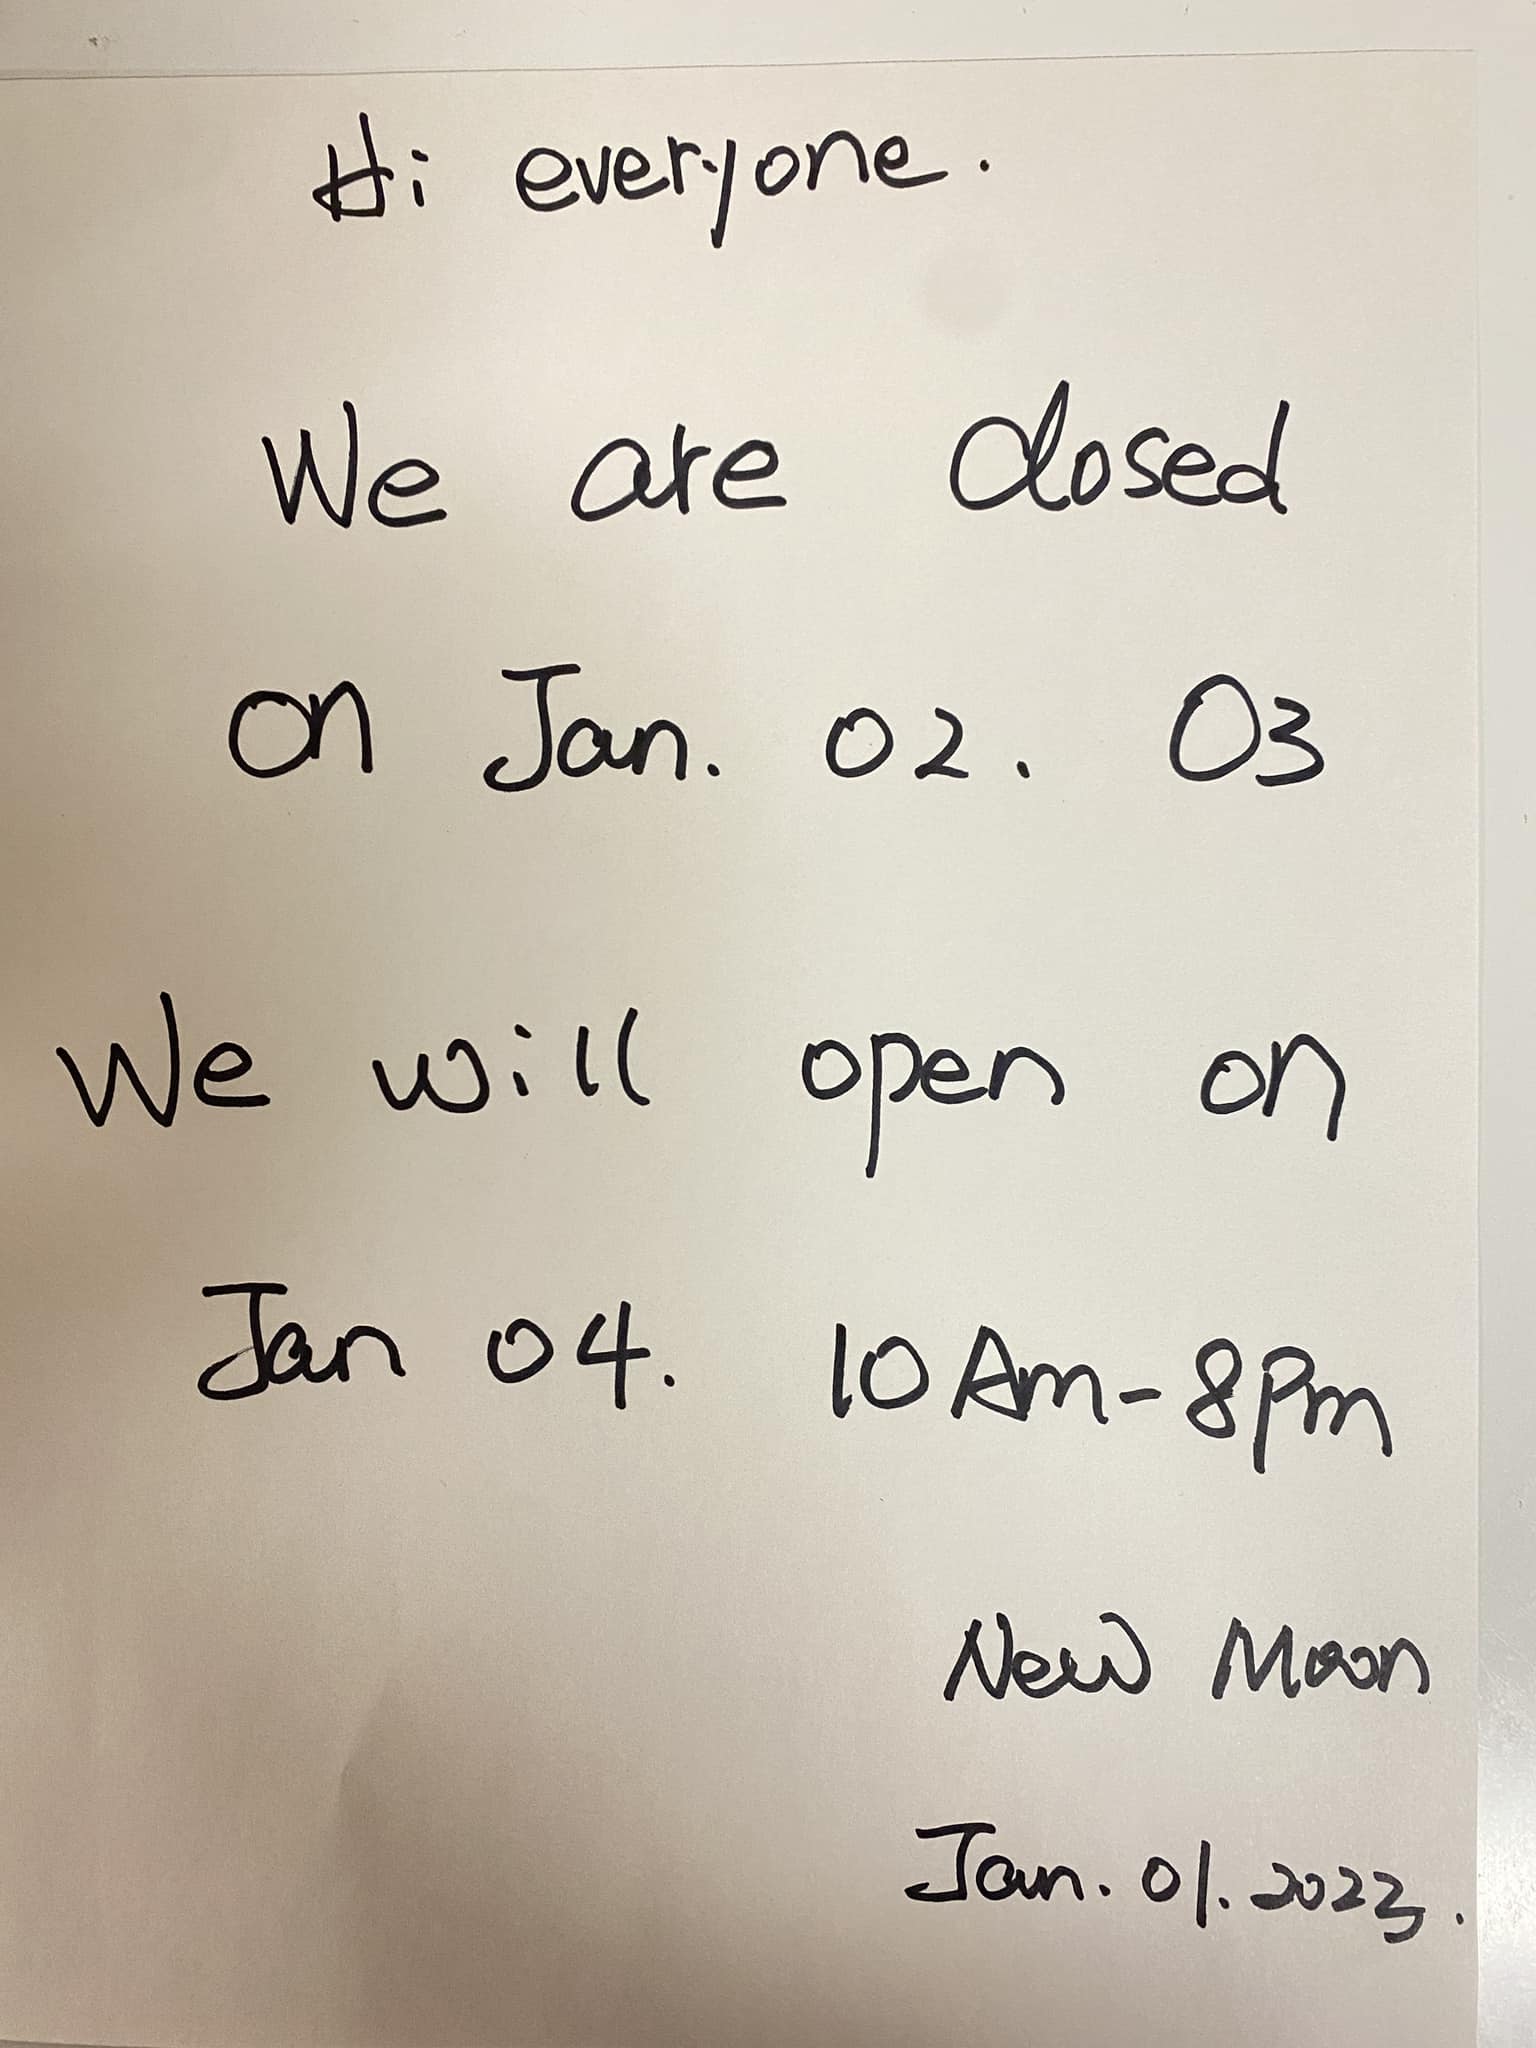 Hi everyone.
We are closed
on Jan. 02. 03
We will open on
Jan 04. 10Am-8pm
New Moon
Jan. 01. 2023.